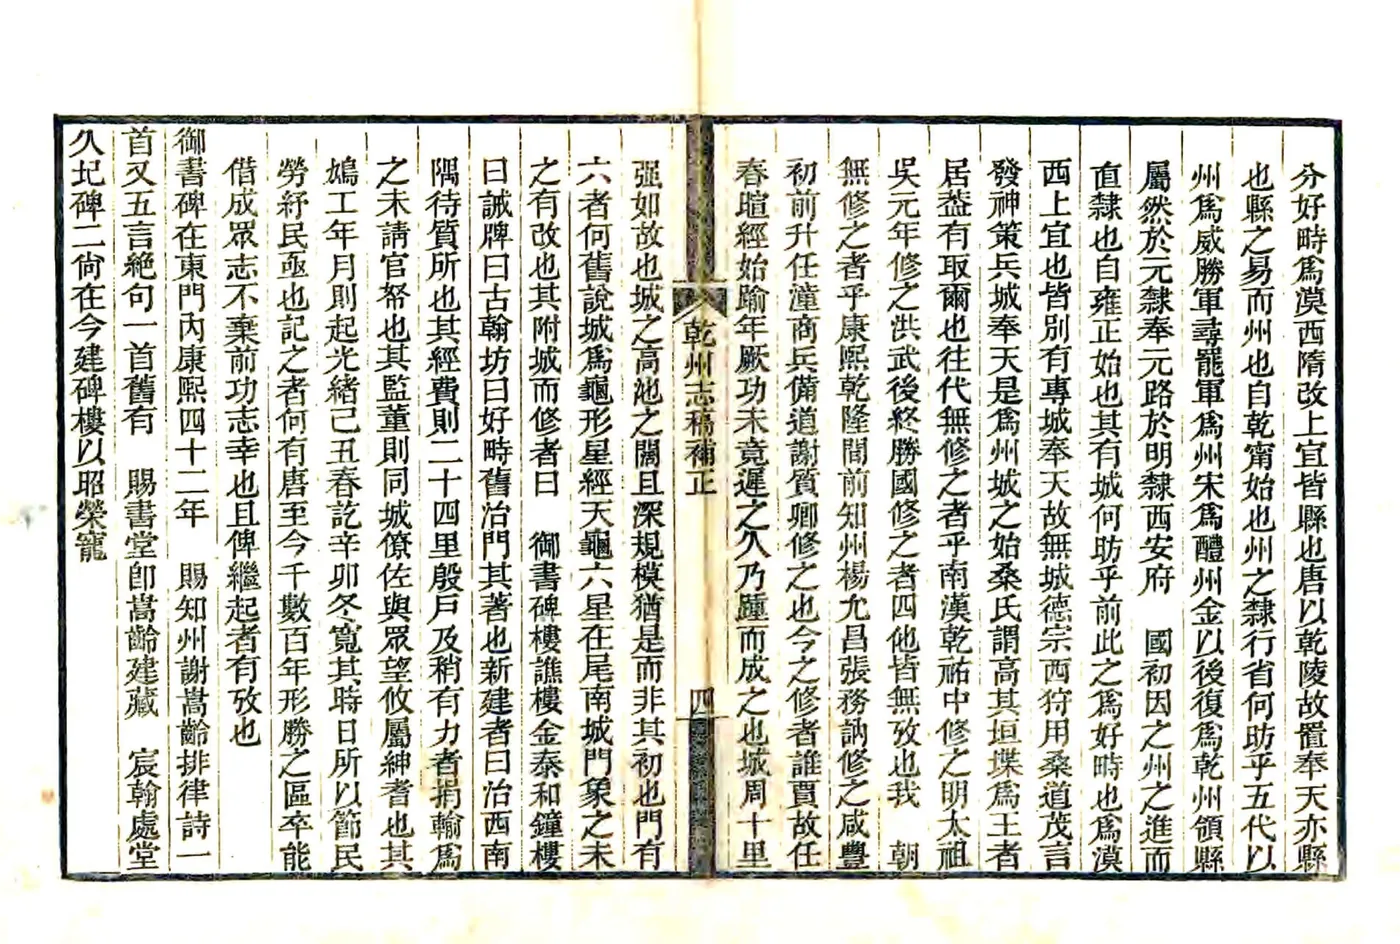 分好畤爲漠西隋改上宜皆縣也唐以乾陵故置奉天亦縣
也縣之易而州也自乾甯始也州之隸行省何昉乎五代以
州爲威勝軍尋罷軍爲州宋爲醴州金以後復爲乾州領縣
屬然於元隸奉元路於明隸西安府　國初因之州之進而
直隸也自雍正始也其有城何昉乎前此之爲好畤也爲漠
西上宜也皆別有專城奉天故無城德宗西狩用桑道茂言
發神策兵城奉天是爲州城之始桑氏謂高其垣堞爲王者
居葢有取爾也往代無修之者乎南漢乾祐中修之明太祖
吳元年修之洪武後終勝國修之者四他皆無攷也我　朝
無修之者乎康熙乾隆間前知州楊允昌張務訥修之咸豐
初前升任潼商兵備道謝質卿修之也今之修者誰賈故任
春暄經始踰年厥功未竟遲之久乃踵而成之也城周十里
乾州志稿補正
四
强如故也城之高池之闊且深規模猶是而非其初也門有
六者何舊說城爲龜形星經天龜六星在尾南城門象之未
之有改也其附城而修者曰　御書碑樓譙樓金泰和鐘樓
曰誡牌曰古翰坊曰好畤舊治門其著也新建者曰治西南
隅待質所也其經費則二十四里殷戶及稍有力者捐輸爲
之未請官帑也其監董則同城僚佐與眾望攸屬紳耆也其
鳩工年月則起光緒己丑春訖辛卯冬寬其時日所以節民
勞紓民亟也記之者何有唐至今千數百年形勝之區卒能
偕成眾志不棄前功志幸也且俾繼起者有攷也
御書碑在東門內康熙四十二年　賜知州謝嵩齡排律詩一
首又五言絕句一首舊有　賜書堂卽嵩齡建藏　宸翰處堂
久圮碑二尙在今建碑樓以昭榮寵